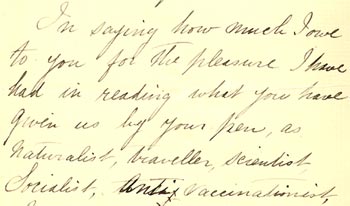 In saying how much I owe
to you for the pleasure I have
had in reading what you have
given us by your pen, as
Naturalist, traveller, scientist,
Socialist, Anti-Vaccinationist,